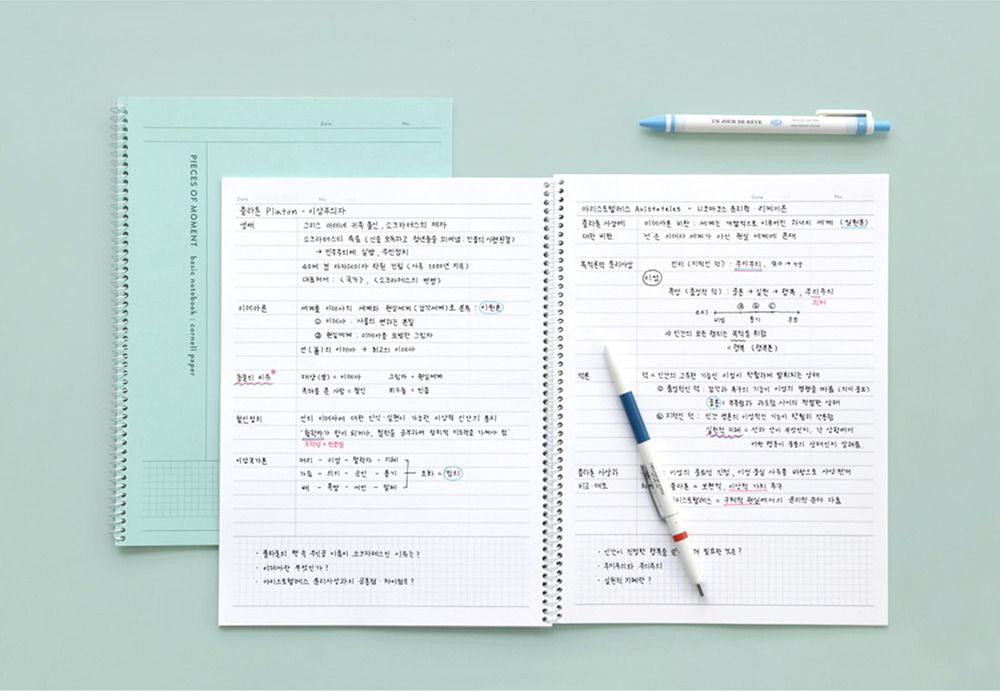 Date.
No.
PIECES OF MOMENT basic notebook : cornell paper
UN JOUR DE RÊVE
Date.
No.
플라톤 Platon - 이상주의자
생애
그리스 아테네 귀족 출신, 소크라테스의 제자
소크라테스의 죽음 (신을 모독하고 청년들을
→ 민주주의에 실망, 우민정치
40세 경 아카데미아 학원 건립 (사후 1000년 지속)
대표저서 : 〈국가〉, 〈소크라테스의 변명〉
이데아론
세계를 이데아의 세계와 현실세계(감각세계)로 분류 : 이원론
① 이데아 : 사물의 변하는 본질
② 현실세계 : 이데아를 모방한 그림자
선(善)의 이데아 → 최고의 이데아
동굴의 비유
태양(빛) = 이데아 그림자 = 현실세계
족쇄를 푼 사람 = 철인 죄수들 = 민중
철인정치
선의 이데아에 대한 인식·실현이 가능한 이상적 인간의 통치
'철학자가 왕이 되거나, 철학을 공부하여 정치적 지도력을 가져야 함'
이상국가론
머리 - 이성 - 철학자 - 지혜
가슴 - 의지 - 군인 - 용기 조화 = 정의
배 - 욕망 - 서민 - 절제
· 플라톤의 책 속 주인공 이름이 소크라테스인 이유는?
· 이데아란 무엇인가?
· 아리스토텔레스 윤리사상과의 공통점·차이점은?
Date.
No.
아리스토텔레스 Aristoteles - 니코마코스 윤리학·리케이온
플라톤 사상에 이데아론 비판 : 세계는 개별적으로 이루어진 하나의 세계 (일원론)
대한 비판 '선'은 이데아 세계가 아닌 현실 세계에 존재
목적론적 윤리사상
진리 (지적인 덕) - 주지주의,
이성
욕망 (품성적 덕) : 중용 → 실천 → 행복, 주의주의
의지
ex)
Ⓐ Ⓑ Ⓒ
비겁 용기 만용
⇒ 인간의 모든 행위는 목적을 위함
= 행복 (행복론)
덕론
덕 = 인간의 고유한 기능인 이성이 탁월하게 발휘되는 상태
① 품성적인 덕 : 감각과 욕구의 기능이 이성의 명령을 따름 (의지 중요)
중용 = 부족함과 과도함 사이의 적절한 상태
② 지적인 덕 : 인간 영혼의 이성적인 기능이 탁월히 작용함
실천적 지혜 = 선과 악이 무엇인지, 각 상황에서
어떤 행동이 중용의 상태인지 알려줌.
플라톤 사상과 : 이성의 중요성 인정, 이성 중심 사유를 바탕으로 사상 전개
비교·대조 플라톤 = 보편적, 이상적 가치 추구
아리스토텔레스 = 구체적 현실에서의 윤리적 문제 다룸
· 인간이 진정한 행복을 필요한 것은?
· 주지주의와 주의주의
· 실천적 지혜란?